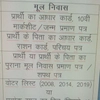 मूल निवास
प्रार्थी का आधार कार्ड, 10वीं
मार्कशीट / जन्म प्रमाण पत्र
प्रार्थी के पिता का आधार कार्ड,
राशन कार्ड, परिचय पत्र
प्रार्थी या प्रार्थी के पिता का
पुराना मूल निवास प्रमाण पत्र
शपथ पत्र
वोटर लिस्ट (2008, 2014, 2019)
या